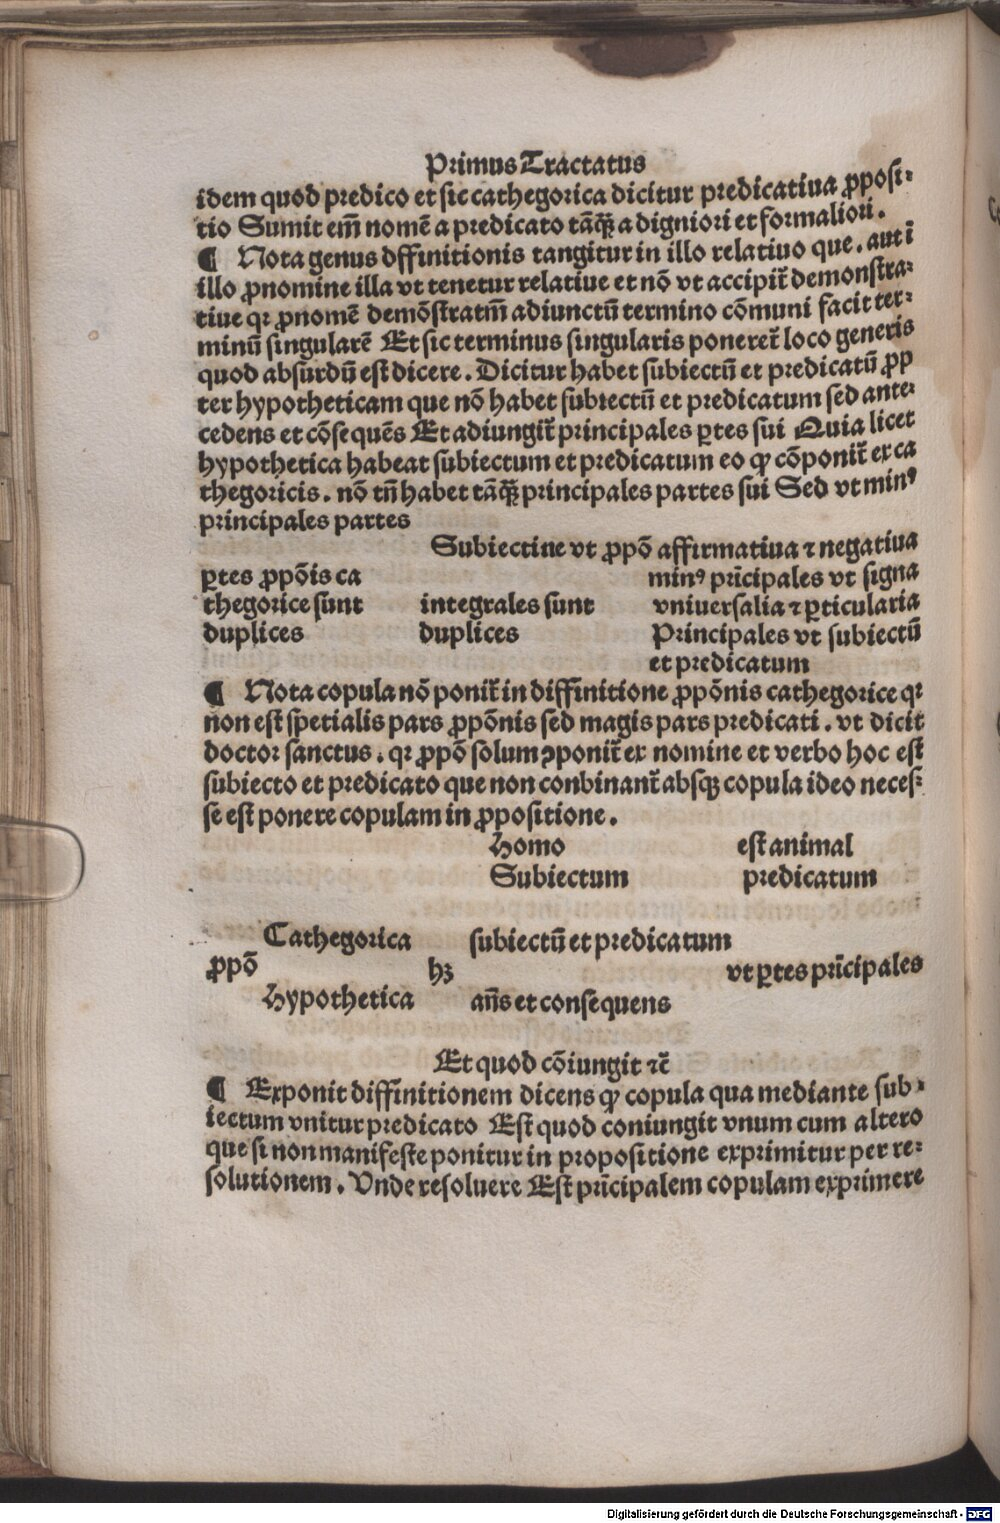 Primus Tractatus
idem quod predico et sic cathegorica dicitur predicatiua ꝓposi-
tio Sumit em̄ nomē a predicato tāqȝ a digniori et formaliori.
¶ Nota genus dffinitionis tangitur in illo relatiuo que. aut ī
illo ꝓnomine illa vt tenetur relatiue et nō vt accipit̄ demonstra-
tiue qꝛ ꝓnomē demōstratm̄ adiunctū termino cōmuni facit ter-
minū singularē Et sic terminus singularis poneret̄ loco generis
quod absurdū est dicere. Dicitur habet subiectū et predicatū ꝓp
ter hypotheticam que nō habet subiectū et predicatum sed ante-
cedens et cōsequēs Et adiungit̄ principales ꝑtes sui Quia licet
hypothetica habeat subiectum et predicatum eo ꝙ cōponit̄ ex ca
thegoricis. nō tn̄ habet tāqȝ principales partes sui Sed vt minꝰ
principales partes
Subiectiue vt ꝓpō affirmatiua ⁊ negatiua
ꝑtes ꝓpōis ca minꝰ prīcipales vt signa
thegorice sunt integrales sunt vniuersalia ⁊ ꝑticularia
duplices duplices Principales vt subiectū
et predicatum
¶ Nota copula nō ponit̄ in diffinitione ꝓpōnis cathegorice qꝛ
non est spetialis pars ꝓpōnis sed magis pars predicati. vt dicit
doctor sanctus. qꝛ ꝓpō solum ꝯponit̄ ex nomine et verbo hoc est
subiecto et predicato que non conbinant̄ absqȝ copula ideo neces-
se est ponere copulam in ꝓpositione.
Homo est animal
Subiectum predicatum
Cathegorica subiectū et predicatum
ꝓpō hȝ vt ꝑtes prīcipales
Hypothetica an̄s et consequens
Et quod cōiungit ⁊c̄
¶ Exponit diffinitionem dicens ꝙ copula qua mediante sub-
iectum vnitur predicato Est quod coniungit vnum cum altero
que si non manifeste ponitur in propositione exprimitur per re-
solutionem. Vnde resoluere Est prīcipalem copulam exprimere
Digitalisierung gefördert durch die Deutsche Forschungsgemeinschaft - DFG